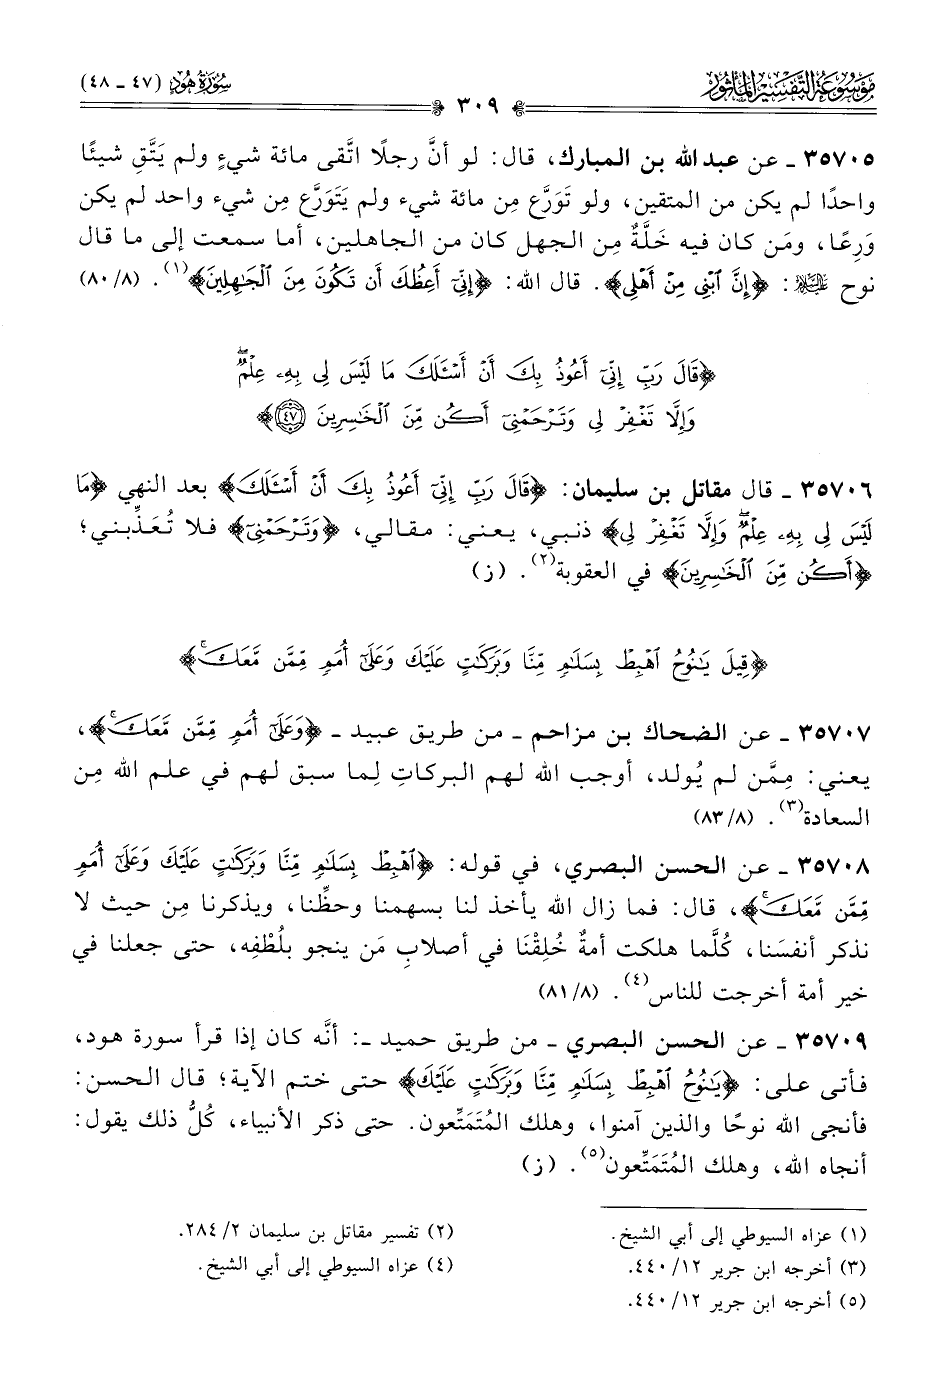 مَوْسُوعَة التَّفْسِير المَأثُور
٣٠٩
سُورَةُ هُودٍ (٤٧ ـ ٤٨)
٣٥٧٠٥ ـ عن عبد الله بن المبارك، قال: لو أنَّ رجلًا اتَّقى مائة شيءٍ ولم يَتَّقِ شيئًا
واحدًا لم يكن من المتقين، ولو تَوَرَّع مِن مائة شيء ولم يَتَوَرَّع مِن شيء واحد لم يكن
وَرِعًا، ومَن كان فيه خَلَّةٌ مِن الجهل كان من الجاهلين، أما سمعت إلى ما قال
نوح عليه السلام: ﴿إِنَّ ٱبْنِى مِنْ أَهْلِى﴾. قال الله: ﴿إِنِّىٓ أَعِظُكَ أَن تَكُونَ مِنَ ٱلْجَٰهِلِينَ﴾(١). (٨/ ٨٠)
﴿قَالَ رَبِّ إِنِّىٓ أَعُوذُ بِكَ أَنْ أَسْـَٔلَكَ مَا لَيْسَ لِى بِهِۦ عِلْمٌۖ
وَإِلَّا تَغْفِرْ لِى وَتَرْحَمْنِىٓ أَكُن مِّنَ ٱلْخَٰسِرِينَ ٤٧﴾
٣٥٧٠٦ ـ قال مقاتل بن سليمان: ﴿قَالَ رَبِّ إِنِّىٓ أَعُوذُ بِكَ أَنْ أَسْـَٔلَكَ﴾ بعد النهي ﴿مَا
لَيْسَ لِى بِهِۦ عِلْمٌۖ وَإِلَّا تَغْفِرْ لِى﴾ ذنبي، يعني: مقالي، ﴿وَتَرْحَمْنِىٓ﴾ فلا تُعَذِّبني؛
﴿أَكُن مِّنَ ٱلْخَٰسِرِينَ﴾ في العقوبة(٢). (ز)
﴿قِيلَ يَٰنُوحُ ٱهْبِطْ بِسَلَٰمٍ مِّنَّا وَبَرَكَٰتٍ عَلَيْكَ وَعَلَىٰٓ أُمَمٍ مِّمَّن مَّعَكَۚ﴾
٣٥٧٠٧ ـ عن الضحاك بن مزاحم ـ من طريق عبيد ـ ﴿وَعَلَىٰٓ أُمَمٍ مِّمَّن مَّعَكَۚ﴾،
يعني: مِمَّن لم يُولد، أوجب الله لهم البركاتِ لِما سبق لهم في علم الله مِن
السعادة(٣). (٨/ ٨٣)
٣٥٧٠٨ ـ عن الحسن البصري، في قوله: ﴿ٱهْبِطْ بِسَلَٰمٍ مِّنَّا وَبَرَكَٰتٍ عَلَيْكَ وَعَلَىٰٓ أُمَمٍ
مِّمَّن مَّعَكَۚ﴾، قال: فما زال الله يأخذ لنا بسهمنا وحظِّنا، ويذكرنا مِن حيث لا
نذكر أنفسَنا، كُلَّما هلكت أمةٌ خُلِقْنَا في أصلابِ مَن ينجو بلُطْفِه، حتى جعلنا في
خير أمة أخرجت للناس(٤). (٨/ ٨١)
٣٥٧٠٩ ـ عن الحسن البصري ـ من طريق حميد ـ: أنَّه كان إذا قرأ سورة هود،
فأتى على: ﴿يَٰنُوحُ ٱهْبِطْ بِسَلَٰمٍ مِّنَّا وَبَرَكَٰتٍ عَلَيْكَ﴾ حتى ختم الآية؛ قال الحسن:
فأنجى الله نوحًا والذين آمنوا، وهلك المُتَمَتِّعون. حتى ذكر الأنبياء، كُلُّ ذلك يقول:
أنجاه الله، وهلك المُتَمَتِّعون(٥). (ز)
(١) عزاه السيوطي إلى أبي الشيخ.
(٢) تفسير مقاتل بن سليمان ٢/ ٢٨٤.
(٣) أخرجه ابن جرير ١٢/ ٤٤٠.
(٤) عزاه السيوطي إلى أبي الشيخ.
(٥) أخرجه ابن جرير ١٢/ ٤٤٠.